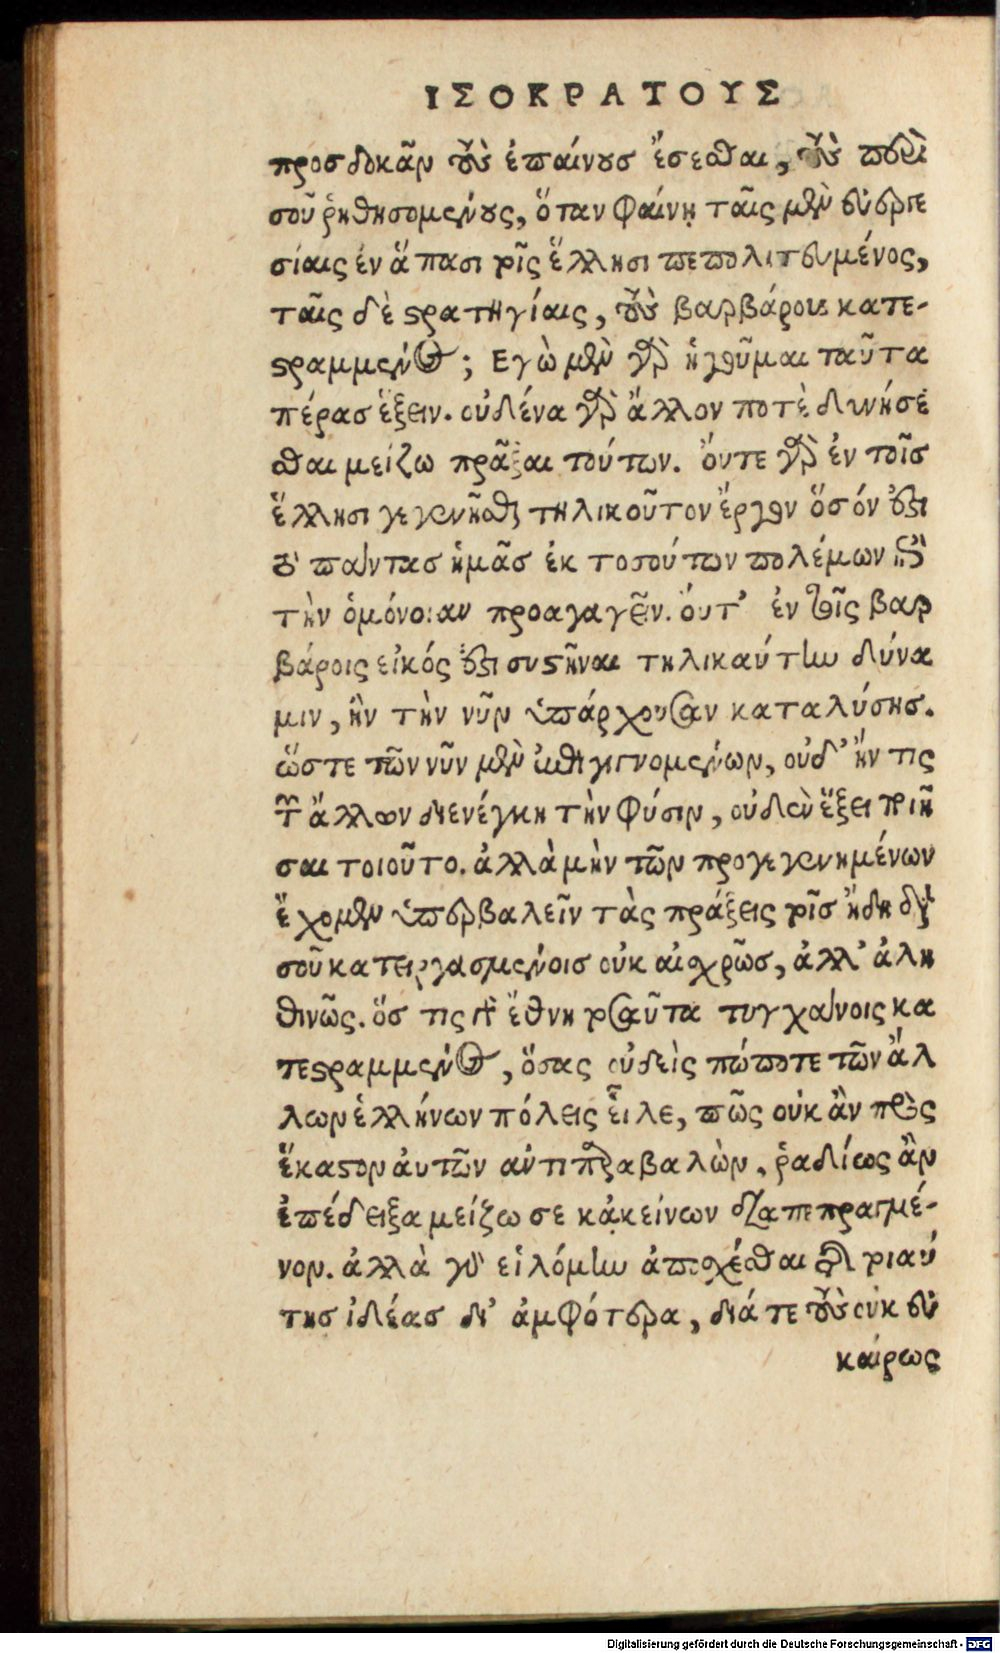 ΙΣΟΚΡΑΤΟΥΣ
προσδοκᾶν τοὺς ἐπαίνους ἔσεσθαι, τοὺς περὶ
σοῦ ῥηθησομένους, ὅταν φαίνῃ ταῖς μὲν εὐεργε
σίαις ἐν ἅπασι τοῖς ἕλλησι πεπολιτευμένος,
ταῖς δὲ στρατηγίαις, τοὺς βαρβάρους κατε-
στραμμένος; Εγὼ μὲν γὰρ ἡγοῦμαι ταῦτα
πέρας ἕξειν. οὐδένα γὰρ ἄλλον ποτὲ δυνήσε
σθαι μείζω πρᾶξαι τούτων. ὄυτε γὰρ ἐν τοῖς
ἕλλησι γεγενῆσθαι τηλικοῦτον ἔργον ὅσόν ἐστι
τὸ πάντας ἡμᾶς ἐκ τοσούτων πολέμων ἐπὶ
τὴν ὁμόνοιαν προαγαγεῖν. ὄυτ' ἐν τοῖς βαρ
βάροις εἰκός ἐστι συστῆναι τηλικαύτην δύνα
μιν, ἢν τὴν νῦν ὑπάρχουσαν καταλύσης.
ὥστε τῶν νῦν μὲν ἐπιγιγνομένων, οὐδ' ἤν τις
τῶν ἄλλων διενέγκη τὴν φύσιν, οὐδὲν ἕξει ποιῆ
σαι τοιοῦτο. ἀλλὰ μὴν τῶν προγεγενημένων
ἔχομεν ὑπερβαλεῖν τὰς πράξεις τοῖς ἤδη διὰ
σοῦ κατειργασμένοις οὐκ αἰσχρῶς, ἀλλ' ἀλη
θινῶς. ὅς τις γὰρ ἔθνη τοσαῦτα τυγχάνοις κα
τεστραμμένος, ὅσας οὐδεὶς πώποτε τῶν ἄλ
λων ἑλλήνων πόλεις εἷλε, πῶς οὐκ ἂν πρὸς
ἕκαστον ἀυτῶν αντιπαραβαλὼν, ῥαδίως ἂν
ἐπέδειξα μείζω σε κἀκείνων διαπεπραγμέ-
νον. ἀλλὰ γὰρ εἱλόμην ἀποσχέσθαι τῆς τοιαύ
της ἰδέας δι' ἀμφότερα, διά τε τοὺς οὐκ εὐ
καίρως
Digitalisierung gefördert durch die Deutsche Forschungsgemeinschaft - DFG